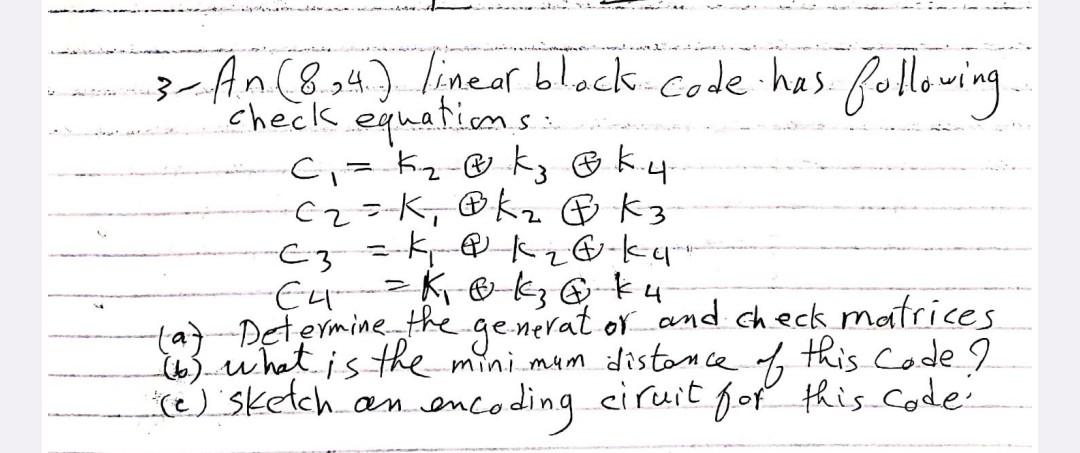 3- An (8,4) linear block code has following
check equations:
C₁ = K₂ ⊕ k₃ ⊕ k.4
C2 = K₁ ⊕ k₂ ⊕ k3
C3 = k₁ ⊕ k₂ ⊕ k4
C4 = K₁ ⊕ k₃ ⊕ k4
(a) Determine the generator and check matrices
(b) what is the minimum distance of this code?
(c) sketch an encoding ciruit for this code.